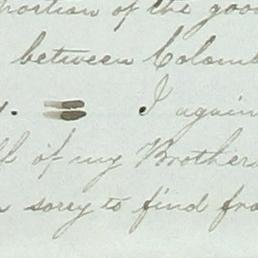 portion of the good
between Colomb
y. = I again
of my Brothers
sorry to find fro